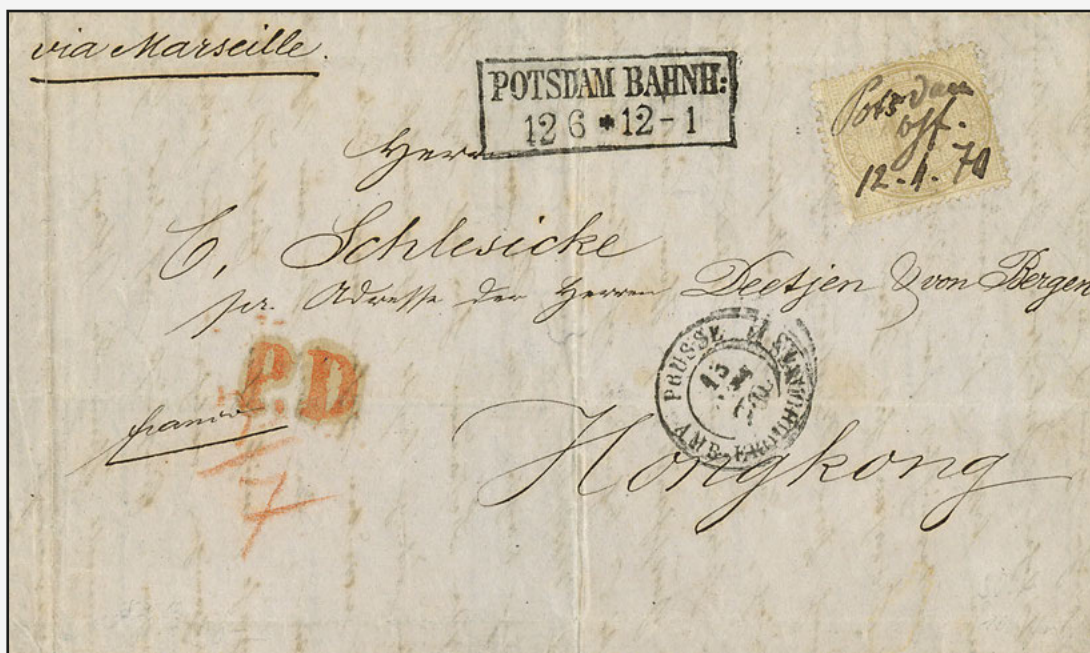 via Marseille.
POTSDAM BAHNH:
12 6 * 12-1
Potsdam
off.
12.6.70
Herrn
C. Schlesicke
pr. Adresse der Herren Deetjen & von Bergen
P.D
franco
7
PRUSSE
13
Hongkong